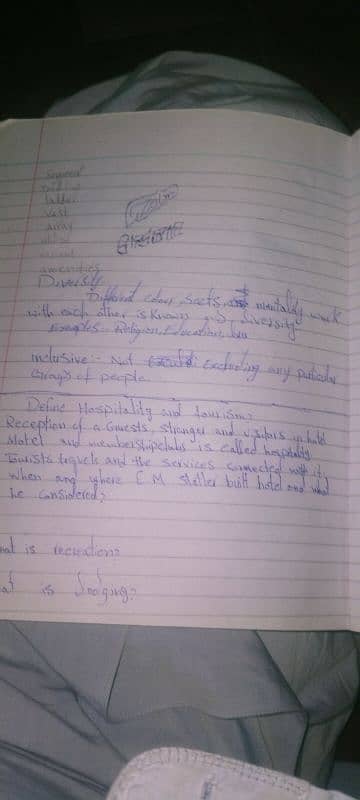 ladder
Vast
Array
amenities
Diversity
Different colour, Sects, mentaldy work
with each other is known as diversity
Examples - Religion, Education,
inclusive :- Not Excluding any particular
Groups of people.
Define Hospitality and tourism?
Reception of a Guests, stranger and visitors in hotel
Motel and membershipclubs is called hospitality
Tourists travels and the services connected with it
when and where E M statler built hotel and what
he considered?
is recreation?
is lodging?